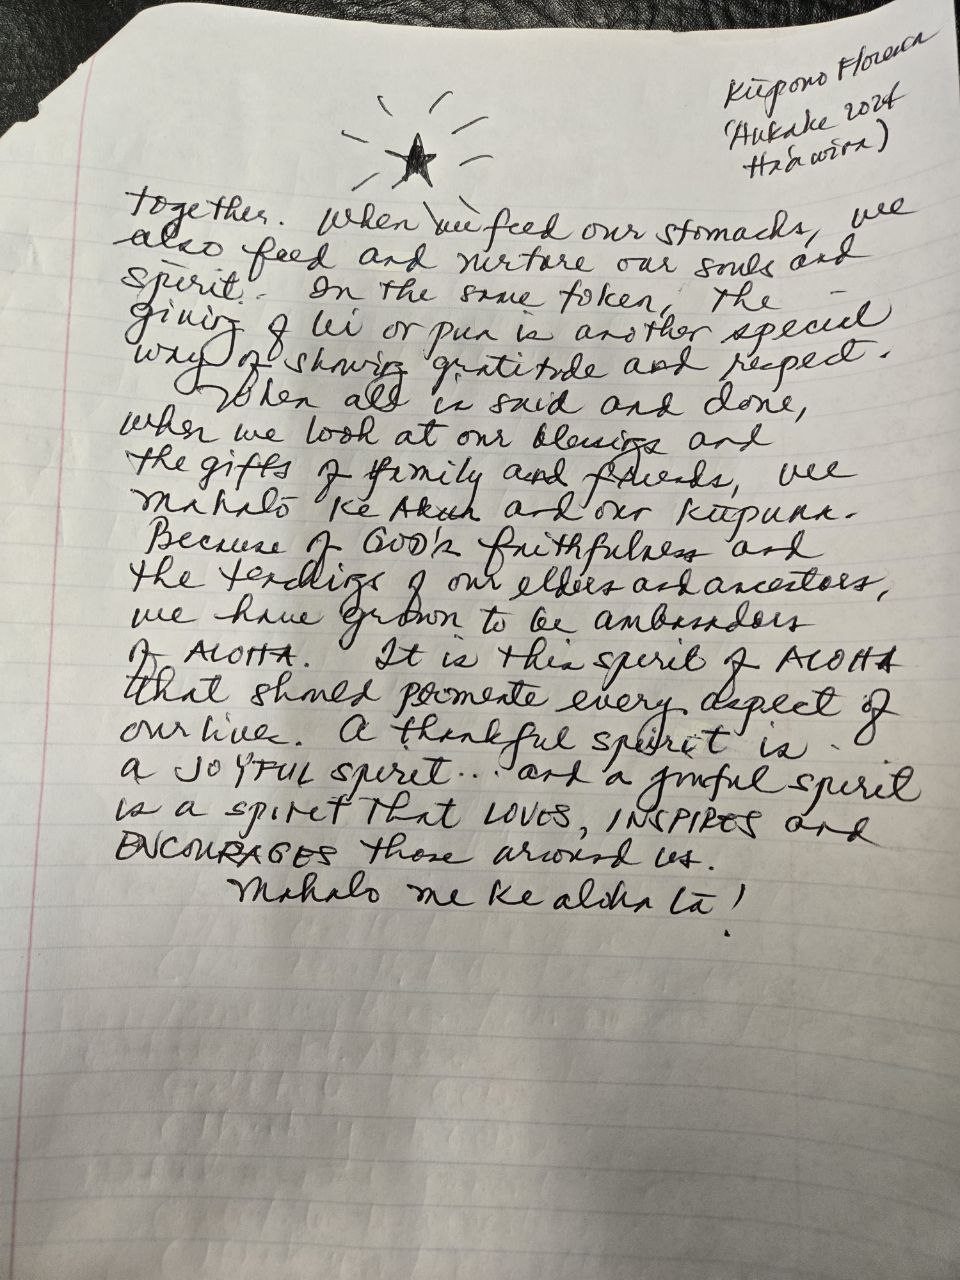 Kūpono Florence
(Aukake 2024
Haʻawina)
together. When we feed our stomachs, we
also feed and nurture our souls and
spirit. In the same token, the
giving of lei or pua is another special
way of showing gratitude and respect.
When all is said and done,
when we look at our blessings and
the gifts of family and friends, we
mahalō Ke Akua and our Kūpuna.
Because of GOD's faithfulness and
the teachings of our elders and ancestors,
we have grown to be ambassadors
of ALOHA. It is this spirit of ALOHA
that should permeate every aspect of
our lives. A thankful spirit is
a JOYFUL spirit... and a joyful spirit
is a spirit that LOVES, INSPIRES and
ENCOURAGES those around us.
Mahalo me ke aloha lā!